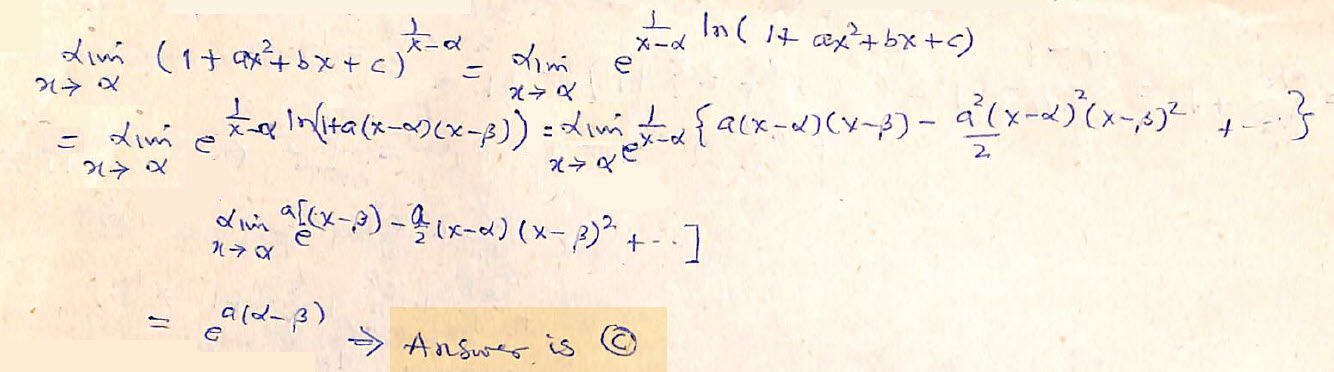 lim x→α (1+ax²+bx+c)^{1/(x-α)} = lim x→α e^{1/(x-α) ln(1+ax²+bx+c)}
= lim x→α e^{1/(x-α) ln(1+a(x-α)(x-β))} = lim x→α e^{1/(x-α) {a(x-α)(x-β) - a²(x-α)²(x-β)²/2 + ----}}
lim x→α e^{a[(x-β) - a/2 (x-α)(x-β)² + --.]}
= e^{a(α-β)} ⇒ Answer is Ⓒ